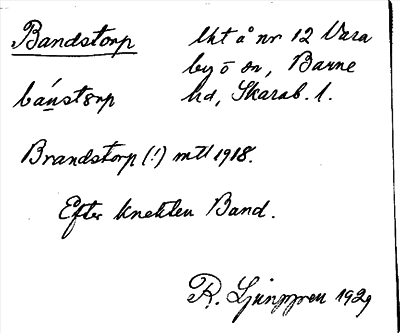 Bandstorp lht å nr 12 Vara
by o sn, Barne
bánstørp hd, Skarab. l.
Brandstorp (!) mtl 1918.
Efter knekten Band.
R. Ljunggren 1929